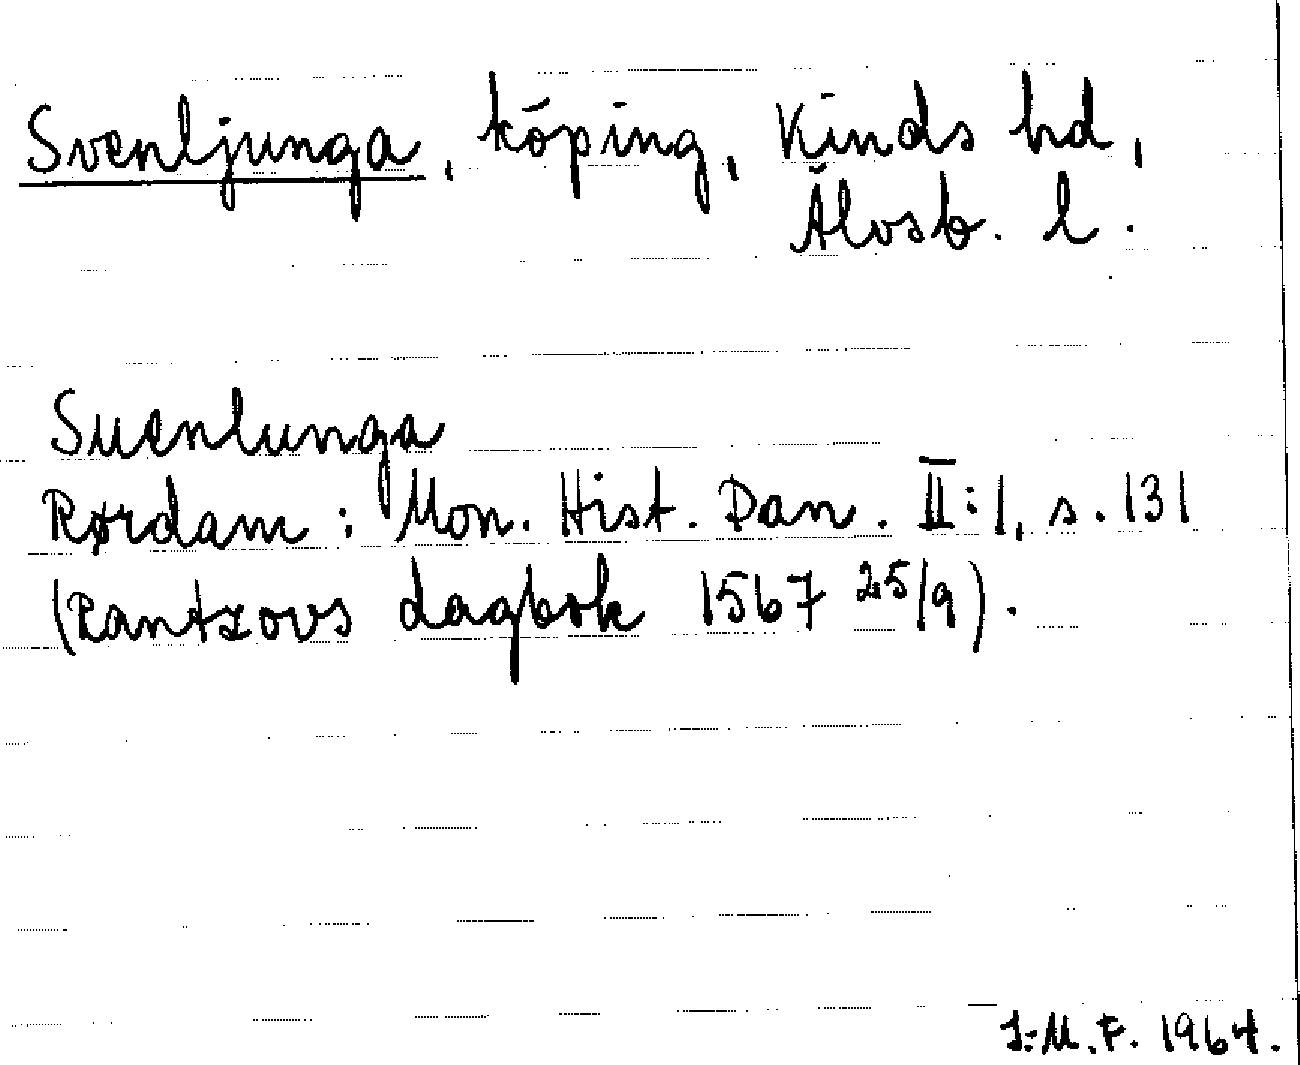 Svenljunga, köping, Kinds hd,
Älvsb. l.
Suenlunga
Rørdam: Mon. Hist. Dan. II:1, s. 131
(Rantzovs dagbok 1567 25/9).
I-M.F. 1964.